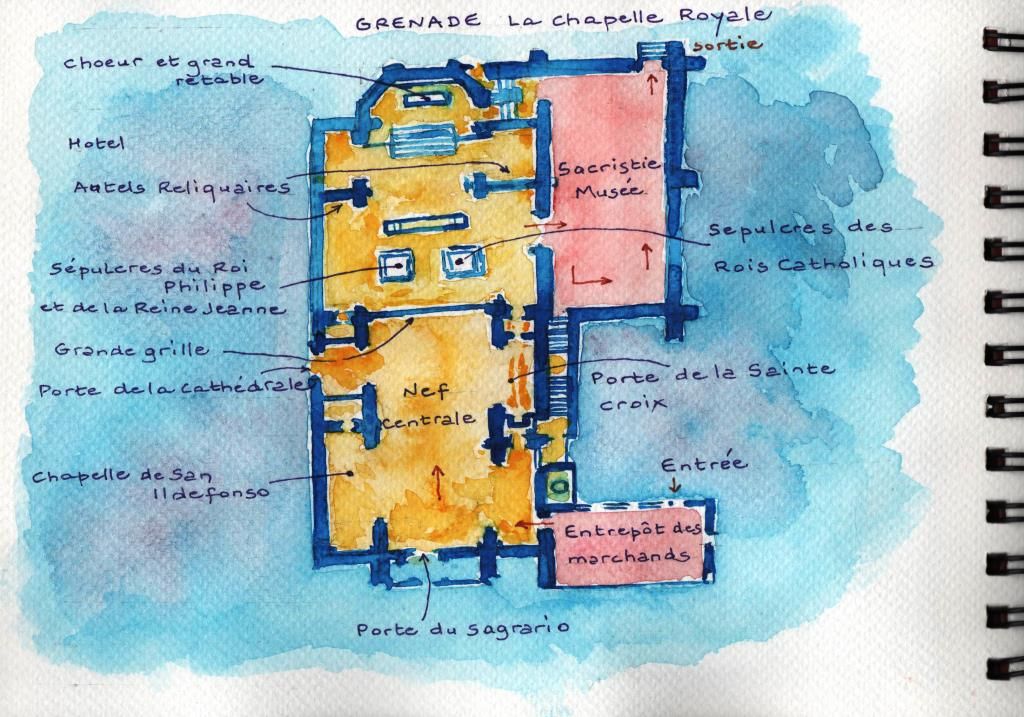 GRENADE La Chapelle Royale
sortie
Choeur et grand
retable
Hotel
Autels Reliquaires
Sacristie
Musée
Sepulcres des
Rois Catholiques
Sépulcres du Roi
Philippe
et de la Reine Jeanne
Grande grille
Porte de la Cathédrale
Nef
Centrale
Porte de la Sainte
croix
Chapelle de San
Ildefonso
Entrée
Entrepôt des
marchands
Porte du Sagrario